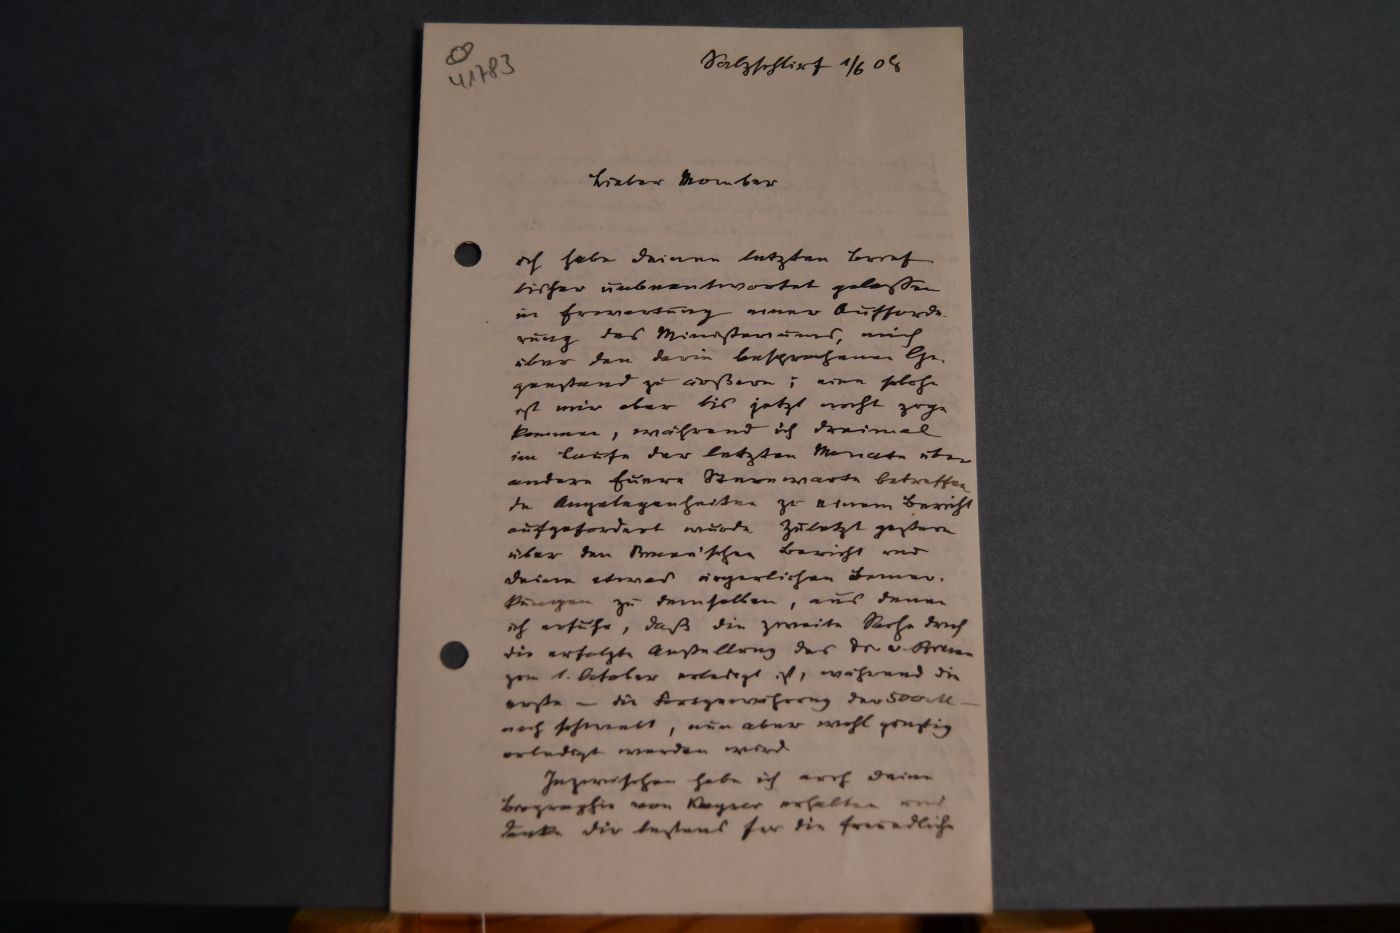 41783
Salzschlirf 1/6 08
Lieber Momber
ich habe deinen letzten Brief
bisher unbeantwortet gelassen
in Erwartung einer Aufforde-
rung des Ministeriums, mich
über den darin besprochenen Ge-
genstand zu äußern; eine solche
ist mir aber bis jetzt nicht zuge
kommen, während ich dreimal
im Laufe der letzten Monate über
andere Euere Sternwarte betreffen
de Angelegenheiten zu einem Bericht
aufgefordert wurde Zuletzt gestern
über den Bericht und
deine etwas ärgerlichen Bemer-
kungen zu demselben, aus denen
ich ersehe, daß die zweite Sache durch
die erfolgte Anstellung des Dr v
zum 1. October erledigt ist, während die
erste – die Fortgewährung der 500 M –
noch schwebt, nun aber wohl günstig
erledigt werden wird
Inzwischen habe ich auch deine
Biographie von Kayser erhalten und
danke dir bestens für die freundliche